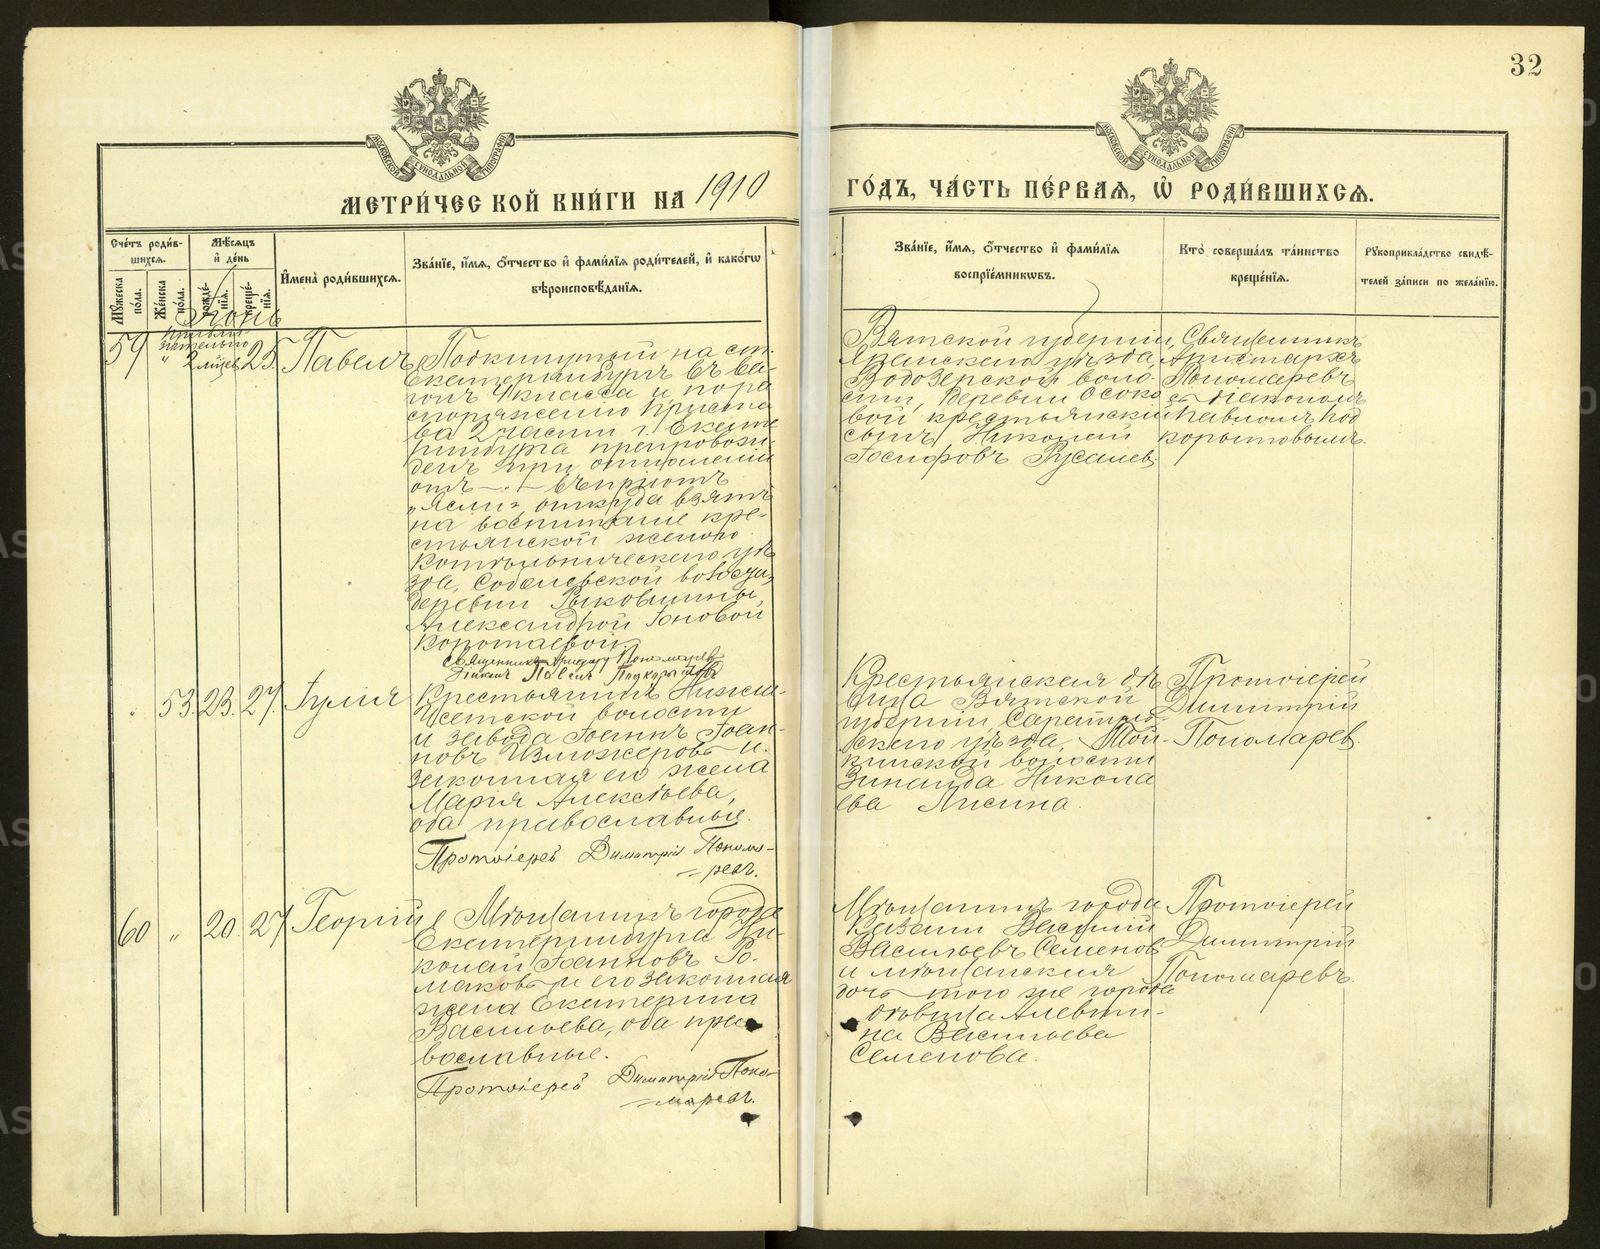 32
МЕТРИ́ЧЕСКОЙ КНИ́ГИ НА 1910
ГО́ДЪ, ЧА́СТЬ ПЕ́РВАЯ, Ѡ҆ РОДИ́ВШИХСЯ.
Сче́тъ роди́вшихся.
Мꙋ́жеска по́ла.
Же́нска по́ла.
Мѣ́сяцъ и҆ де́нь
рожде́нїя.
креще́нїя.
И҆мена̀ роди́вшихся.
Зва́нїе, и҆́мя, ѻ҆́тчество и҆ фами́лїя роди́телей, и҆ како́гѡ
вѣроисповѣ́данїя.
Зва́нїе, и҆́мя, ѻ҆́тчество и҆ фами́лїя
воспрїе́мникѡвъ.
Кто̀ соверша́лъ та́инство
креще́нїя.
Рꙋкоприкла́дство свидѣ́-
телей за́писи по жела́нїю.
Іюнь
59 " приблизительно 2 мѣсяц. 25. Павелъ
Подкинутый на ст.
Екатеринбургъ въ ва-
гонъ 4 класса и по ра
споряженію пристава
2 части г. Екате
ринбурга препровож
денъ при отношеніи
отъ — въ пріютъ
„Ясли", откуда взятъ
на воспитаніе кре-
стьянской женою
Котельническаго уѣ
зда, Соделевской волости,
деревни Рыковшины,
Александрой Іоновой
Коротаевой.
Священникъ Аристархъ Пономаревъ
Діаконъ Павелъ Подкорытовъ
Вятской губерніи,
Яранскаго уѣзда,
Водозерской воло-
сти, деревни Осоко
вой, крестьянскій
сынъ Николай
Іосифовъ Русалев
Священникъ
Аристархъ
Пономаревъ
съ діакономъ
Павломъ Под
корытовымъ.
" 53. 23. 27. Іулія
Крестьянинъ Нижне-
Исетской волости
и завода Іоаннъ Іоан-
новъ Изможеровъ и
законная его жена
Марія Алексѣева,
оба православные.
Протоіерей Димитрій Понома-
ревъ.
Крестьянская дѣ
вица Вятской
губерніи, Сарапуль-
скаго уѣзда, Той-
кинской волости
Зинаида Никола
ева Лисина.
Протоіерей
Димитрій
Пономарев.
60 " 20. 27 Георгій
Мѣщанинъ города
Екатеринбурга Ни-
колай Іоанновъ Ро-
маковъ и его законная
жена Екатерина
Васильева, оба пра-
вославные.
Протоіерей Димитрій Поно-
маревъ.
Мѣщанинъ города
Казани Василій
Васильевъ Семенов
и мѣщанская
дочь того же города
дѣвица Алевти-
на Васильева
Семенова.
Протоіерей
Димитрій
Пономаревъ.
METRIKI.GASO-URAL.RU